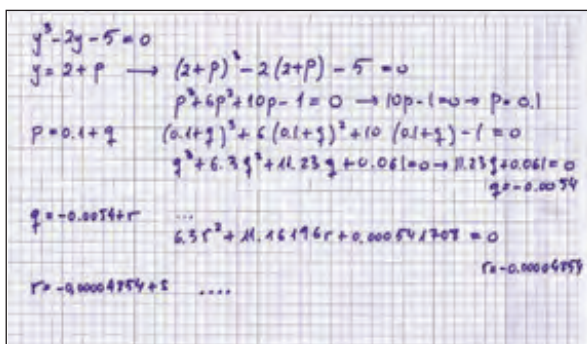 y³-2y-5=0
y=2+p → (2+p)³-2(2+p)-5=0
p³+6p²+10p-1=0 → 10p-1=0 → p=0.1
p=0.1+q (0.1+q)³+6(0.1+q)²+10(0.1+q)-1=0
q³+6.3q²+11.23q+0.061=0 → 11.23q+0.061=0
q=-0.0054
q=-0.0054+r ...
6.3r²+11.16196r+0.000541708=0
r=-0.00004854
r=-0.00004854+s ....